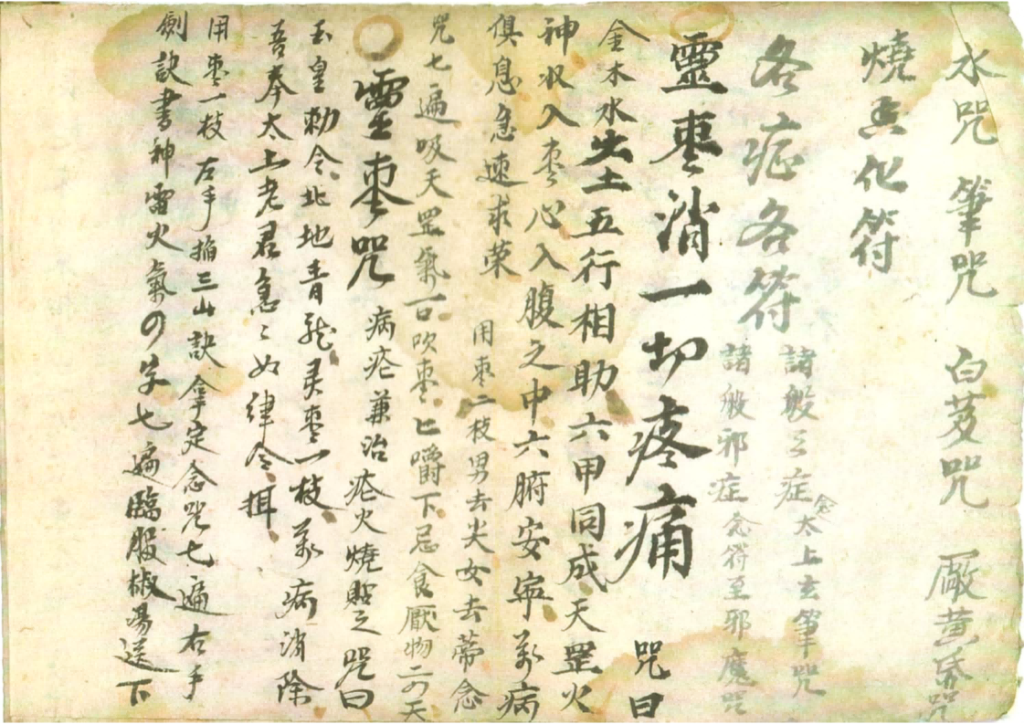 水咒 筆咒 白芨咒 厰黄昏咒
燒香化符
各症各符 諸般之症念太上玄筆咒
諸般邪症念符至邪魔咒
靈枣消一切疼痛 咒曰
金木水火土五行相助六甲同成天罡火
神収入枣心入腹之中六腑安寧萬病
俱息急速求荣 用枣二枝男去尖女去蒂念
咒七遍吸天罡氣一口吹枣上嚼下忌食厭物二の天
靈枣咒 病疮兼治疮火燒貼之 咒曰
玉皇勅令北地青龍灵枣一枝萬病消除
吾奉太上老君急々如律令
用枣一枝左手掐三山訣拿定念咒七遍右手
劍訣書神雷火氣の字七遍臨服椒湯送下